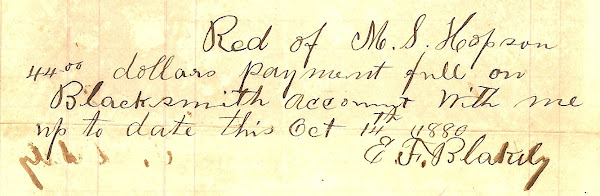 Recd of M. S. Hopson
44⁰⁰ dollars payment full on
Blacksmith account With me
up to date this Oct 14th 1880
E. F. Blakely